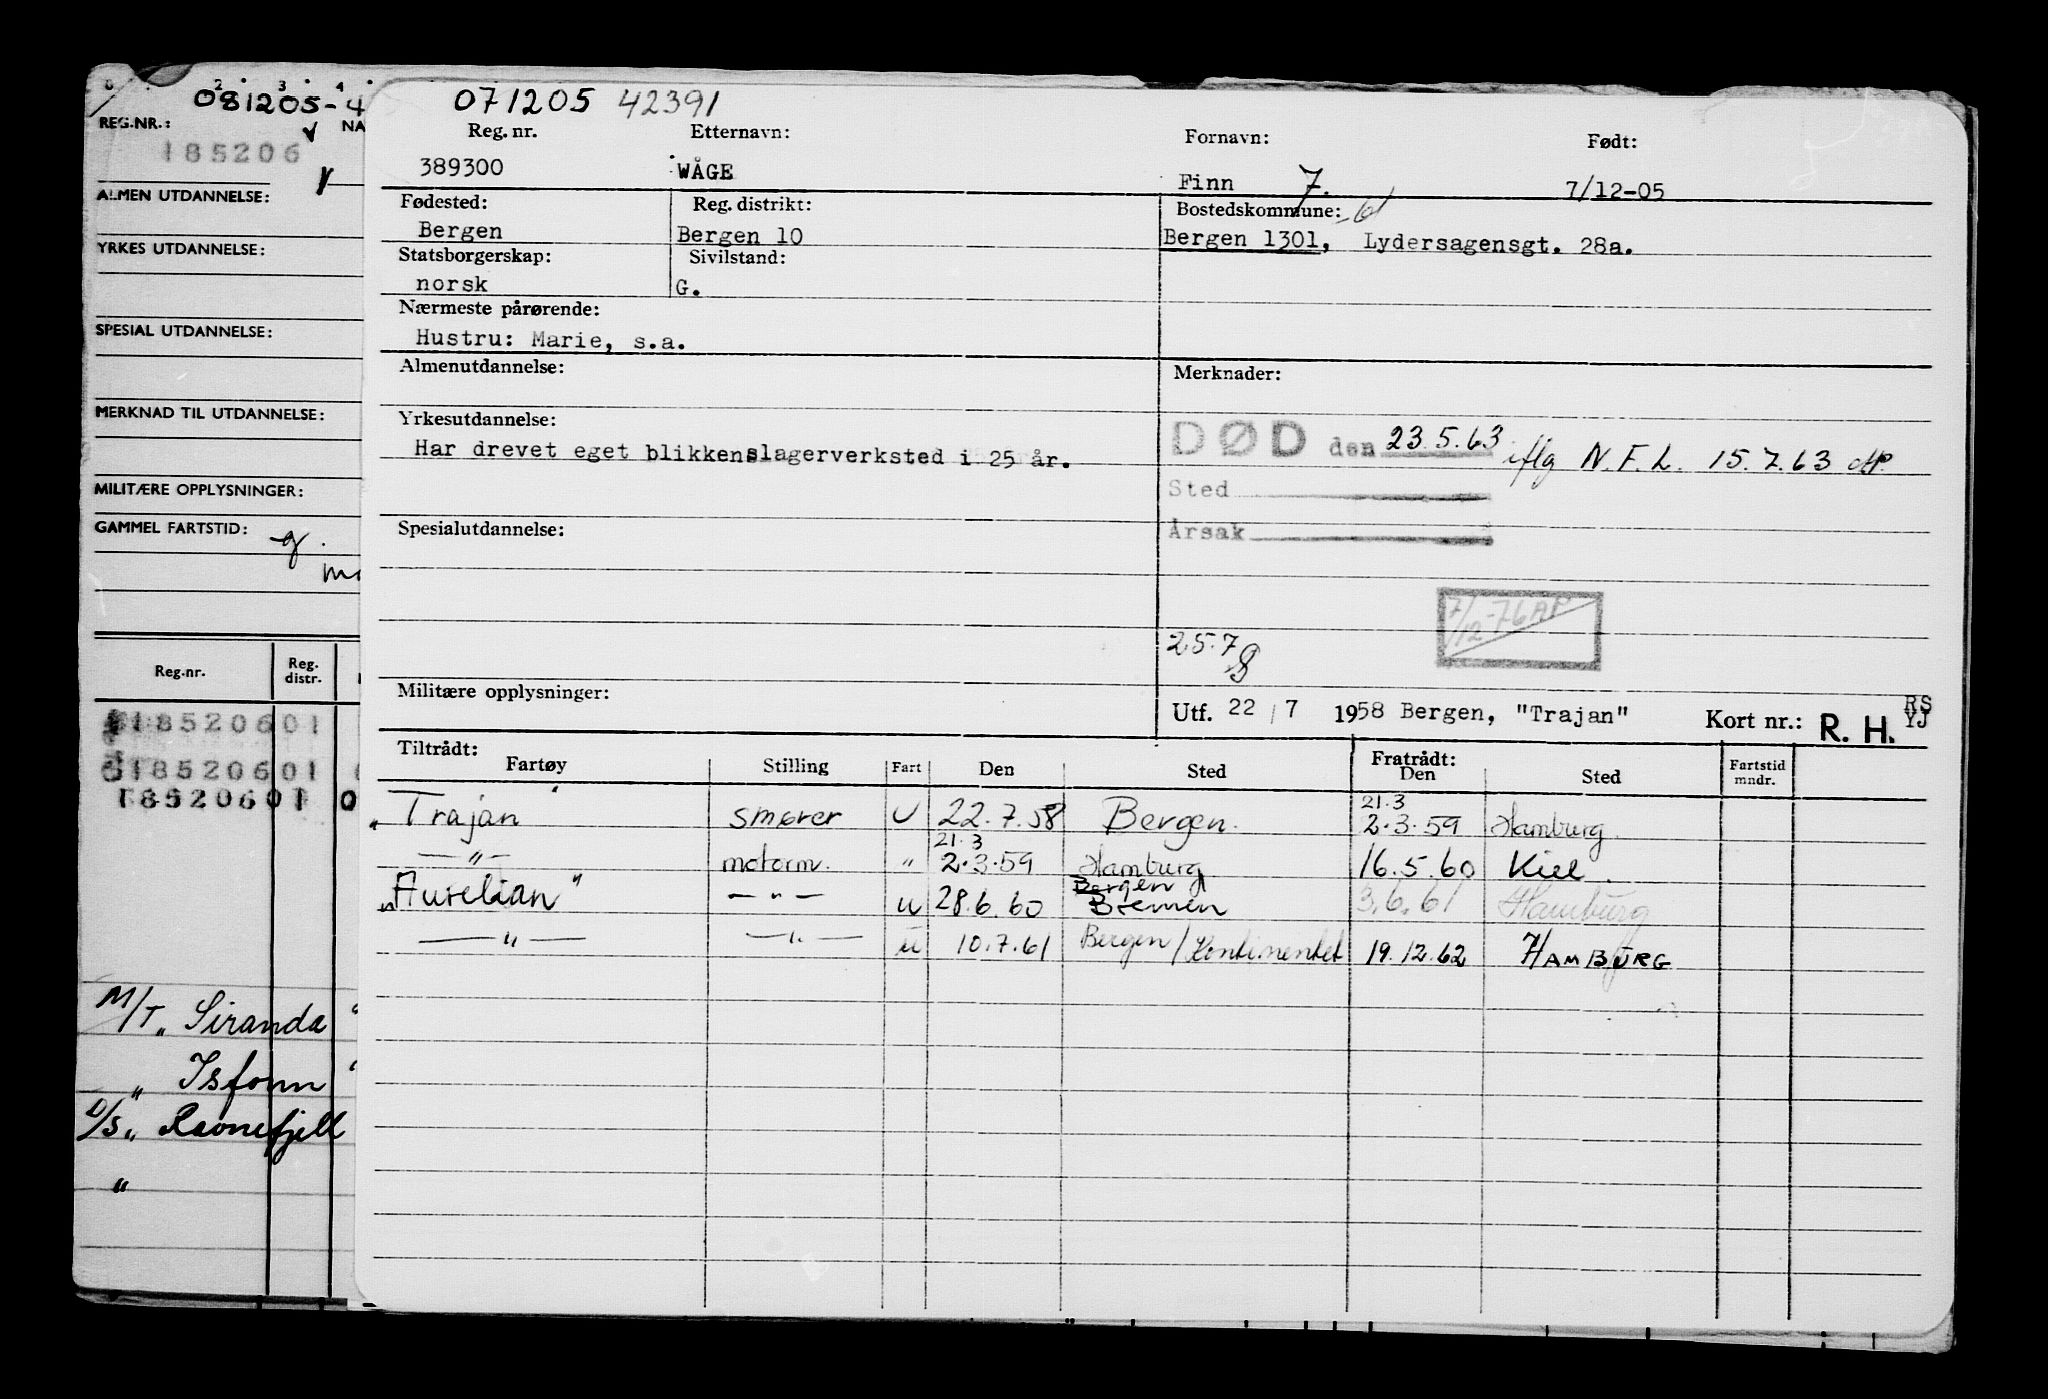 081205-4
REG.NR.: NA
185206
ALMEN UTDANNELSE:
YRKES UTDANNELSE:
SPESIAL UTDANNELSE:
MERKNAD TIL UTDANNELSE:
MILITÆRE OPPLYSNINGER:
GAMMEL FARTSTID:
Reg.nr. Reg. distr.
18520601
18520601
18520601 0
M/T „Siranda"
„ Isfonn "
D/S „ Ravnefjell
"
071205 42391
Reg. nr. Etternavn: Fornavn: Født:
389300 WÅGE Finn 7. 7/12-05
Fødested: Reg. distrikt: Bostedskommune: -61
Bergen Bergen 10 Bergen 1301, Lydersagensgt. 28a.
Statsborgerskap: Sivilstand:
norsk G.
Nærmeste pårørende:
Hustru: Marie, s.a.
Almenutdannelse: Merknader:
Yrkesutdannelse:
Har drevet eget blikkenslagerverksted i 25 år.
DØD den 23.5.63 iflg N.F.L. 15.7.63
Sted
Årsak
Spesialutdannelse:
7/12-76 AP
25.7
Militære opplysninger:
Utf. 22 / 7 1958 Bergen, "Trajan" Kort nr.: R. H. RS YJ
Tiltrådt: Fratrådt:
Fartøy Stilling Fart Den Sted Den Sted Fartstid mndr.
„Trajan" smører U 22.7.58 Bergen. 21.3 2.3.59 Hamburg.
—"— motorm. " 21.3 2.3.59 Hamburg 16.5.60 Kiel.
„Aurelian" — " — u 28.6.60 Bergen Bremen 3.6.61 Hamburg
—"— —"— u 10.7.61 Bergen/Kontinentet 19.12.62 HAMBURG